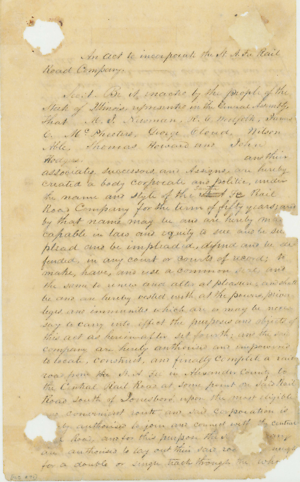 An act to incorporate the
Road Company.
Sect. Be it enacted by the people of the
State of Illinois represented in the General Assembly
That M. S.
C. Mc George Cloud, Wilson
Able, Thomas Howard and John
Hodges and their
associates, successors, and assigns, are hereby
created a body corporate and politic, under
the name and style of the Rail
Road Company for the term of fifty years and
by that name may be and are hereby made
capable in law and equity to sue and be sued
plead and be impleaded, defend and be de-
fended, in any court or courts of record, to
make, have, and use a common seal, and
the same to renew and alter at pleasure, and shall
be and are hereby vested with all the powers, privi-
leges and immunities which are or may be neces-
sary to carry into effect the purposes and objects of
this act as hereinafter set forth, and the said
company are hereby authorized and empowered
to locate, construct, and finally complete a rail
road from the in Alexander County, to
the Central Rail Road at some point on said Rail
Road South of Jonesboro upon the most eligible
and convenient route and said corporation is
authorized to join and connect with the Central
Road, and for this purpose the
are authorized to lay out their said road
for a double or single track through the whole